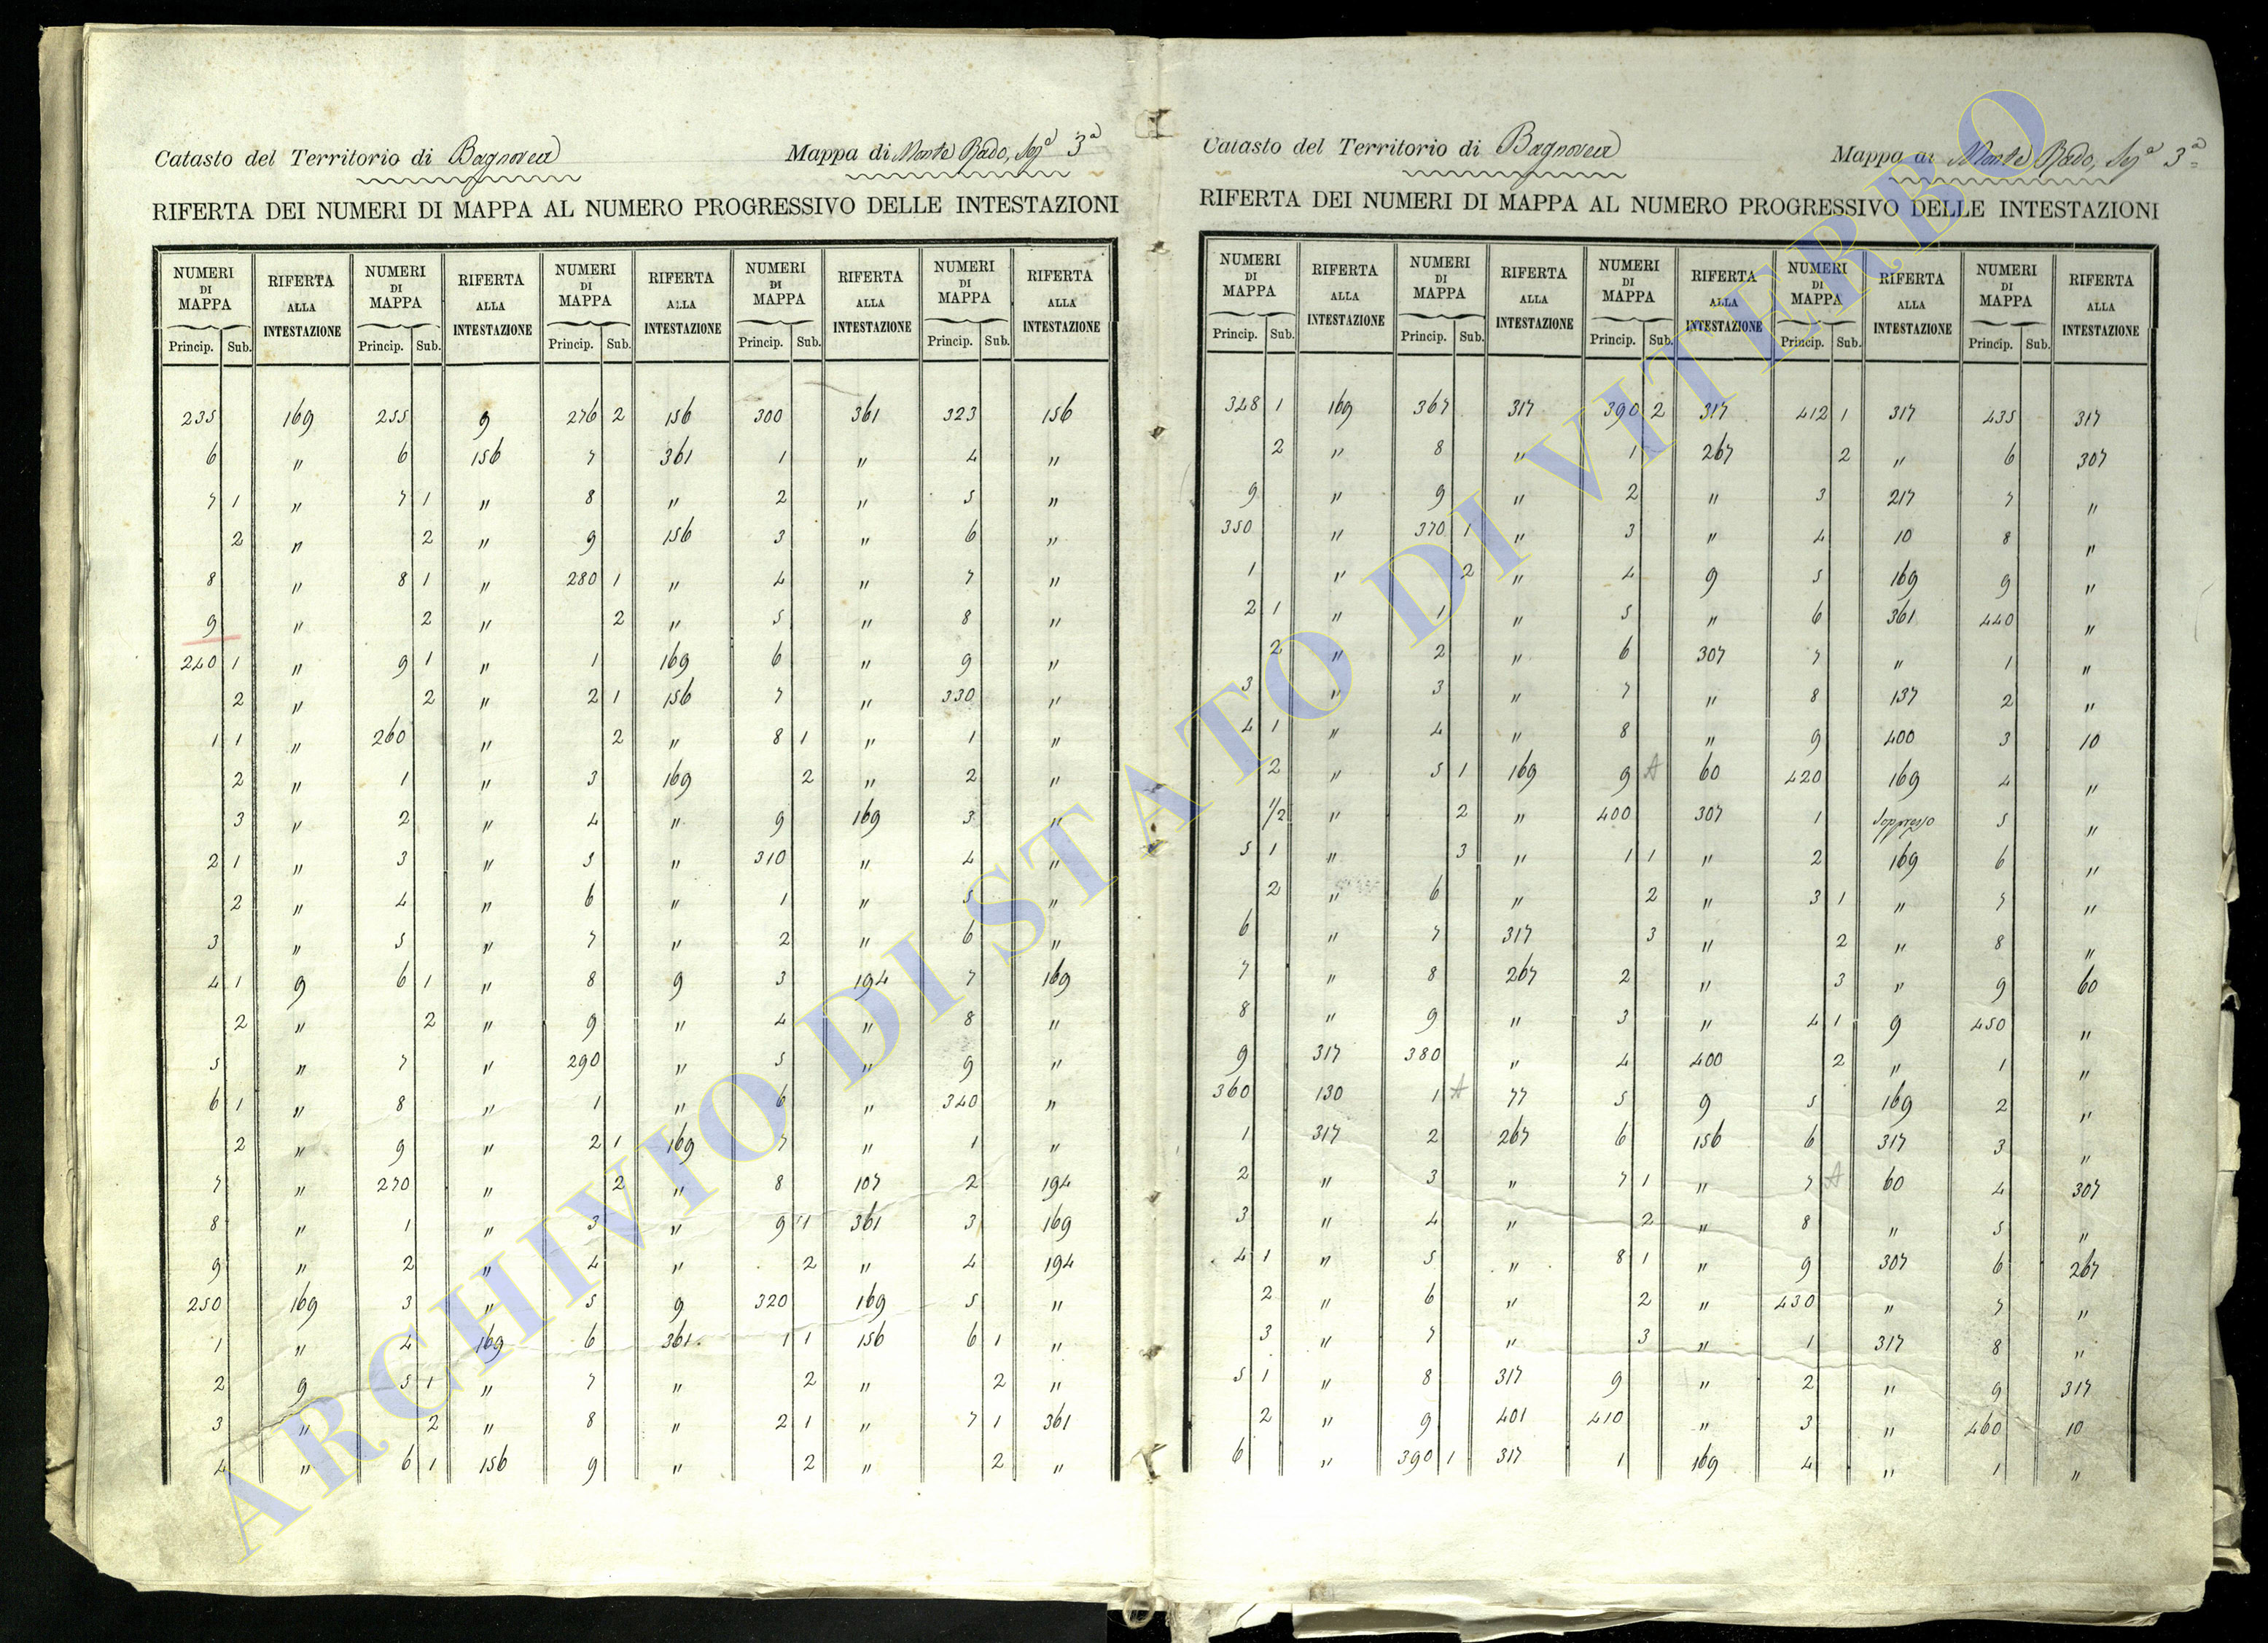 Catasto del Territorio di Bagnorea Mappa di Monte Rado, Sez.ª 3ª
RIFERTA DEI NUMERI DI MAPPA AL NUMERO PROGRESSIVO DELLE INTESTAZIONI
NUMERI DI MAPPA RIFERTA ALLA INTESTAZIONE NUMERI DI MAPPA RIFERTA ALLA INTESTAZIONE NUMERI DI MAPPA RIFERTA ALLA INTESTAZIONE NUMERI DI MAPPA RIFERTA ALLA INTESTAZIONE NUMERI DI MAPPA RIFERTA ALLA INTESTAZIONE
Princip. Sub. Princip. Sub. Princip. Sub. Princip. Sub. Princip. Sub.
235 169 255 9 276 2 156 300 361 323 156
6 " 6 156 7 361 1 " 4 "
7 1 " 7 1 " 8 " 2 " 5 "
2 " 2 " 9 156 3 " 6 "
8 " 8 1 " 280 1 " 4 " 7 "
9 " 2 " 2 " 5 " 8 "
240 1 " 9 1 " 1 169 6 " 9 "
2 " 2 " 2 1 156 7 " 330 "
1 1 " 260 " 2 " 8 1 " 1 "
2 " 1 " 3 169 2 " 2 "
3 " 2 " 4 " 9 169 3 "
2 1 " 3 " 5 " 310 " 4 "
2 " 4 " 6 " 1 " 5 "
3 " 5 " 7 " 2 " 6 "
4 1 9 6 1 " 8 9 3 194 7 169
2 " 2 " 9 " 4 " 8 "
5 " 7 " 290 " 5 " 9 "
6 1 " 8 " 1 " 6 " 340 "
2 " 9 " 2 1 169 7 " 1 "
7 " 270 " 2 " 8 107 2 194
8 " 1 " 3 " 9 1 361 3 169
9 " 2 " 4 " 2 " 4 194
250 169 3 " 5 9 320 169 5 "
1 " 4 169 6 361 1 1 156 6 1 "
2 9 5 1 " 7 " 2 " 2 "
3 " 2 " 8 " 2 1 " 7 1 361
4 " 6 1 156 9 " 2 " 2 "
Catasto del Territorio di Bagnorea Mappa di Monte Rado, Sez.ª 3ª
RIFERTA DEI NUMERI DI MAPPA AL NUMERO PROGRESSIVO DELLE INTESTAZIONI
NUMERI DI MAPPA RIFERTA ALLA INTESTAZIONE NUMERI DI MAPPA RIFERTA ALLA INTESTAZIONE NUMERI DI MAPPA RIFERTA ALLA INTESTAZIONE NUMERI DI MAPPA RIFERTA ALLA INTESTAZIONE NUMERI DI MAPPA RIFERTA ALLA INTESTAZIONE
Princip. Sub. Princip. Sub. Princip. Sub. Princip. Sub. Princip. Sub.
348 1 169 367 317 390 2 317 412 1 317 435 317
2 " 8 " 1 267 2 " 6 307
9 " 9 " 2 " 3 217 7 "
350 " 370 1 " 3 " 4 10 8 "
1 " 2 " 4 9 5 169 9 "
2 1 " 1 " 5 " 6 361 440 "
2 " 2 " 6 307 7 " 1 "
3 " 3 " 7 " 8 137 2 "
4 1 " 4 " 8 " 9 400 3 10
2 " 5 1 169 9 A 60 420 169 4 "
1/2 " 2 " 400 307 1 soppresso 5 "
5 1 " 3 " 1 1 " 2 169 6 "
2 " 6 " 2 " 3 1 " 7 "
6 " 7 317 3 " 2 " 8 "
7 " 8 267 2 " 3 " 9 60
8 " 9 " 3 " 4 1 9 450 "
9 317 380 " 4 400 2 " 1 "
360 130 1 A 77 5 9 5 169 2 "
1 317 2 267 6 156 6 317 3 "
2 " 3 " 7 1 " 7 A 60 4 307
3 " 4 " 2 " 8 " 5 "
4 1 " 5 " 8 1 " 9 307 6 267
2 " 6 " 2 " 430 " 7 "
3 " 7 " 3 " 1 317 8 "
5 1 " 8 317 9 " 2 " 9 317
2 " 9 401 410 " 3 " 460 10
6 " 390 1 317 1 169 4 " 1 "
ARCHIVIO DI STATO DI VITERBO